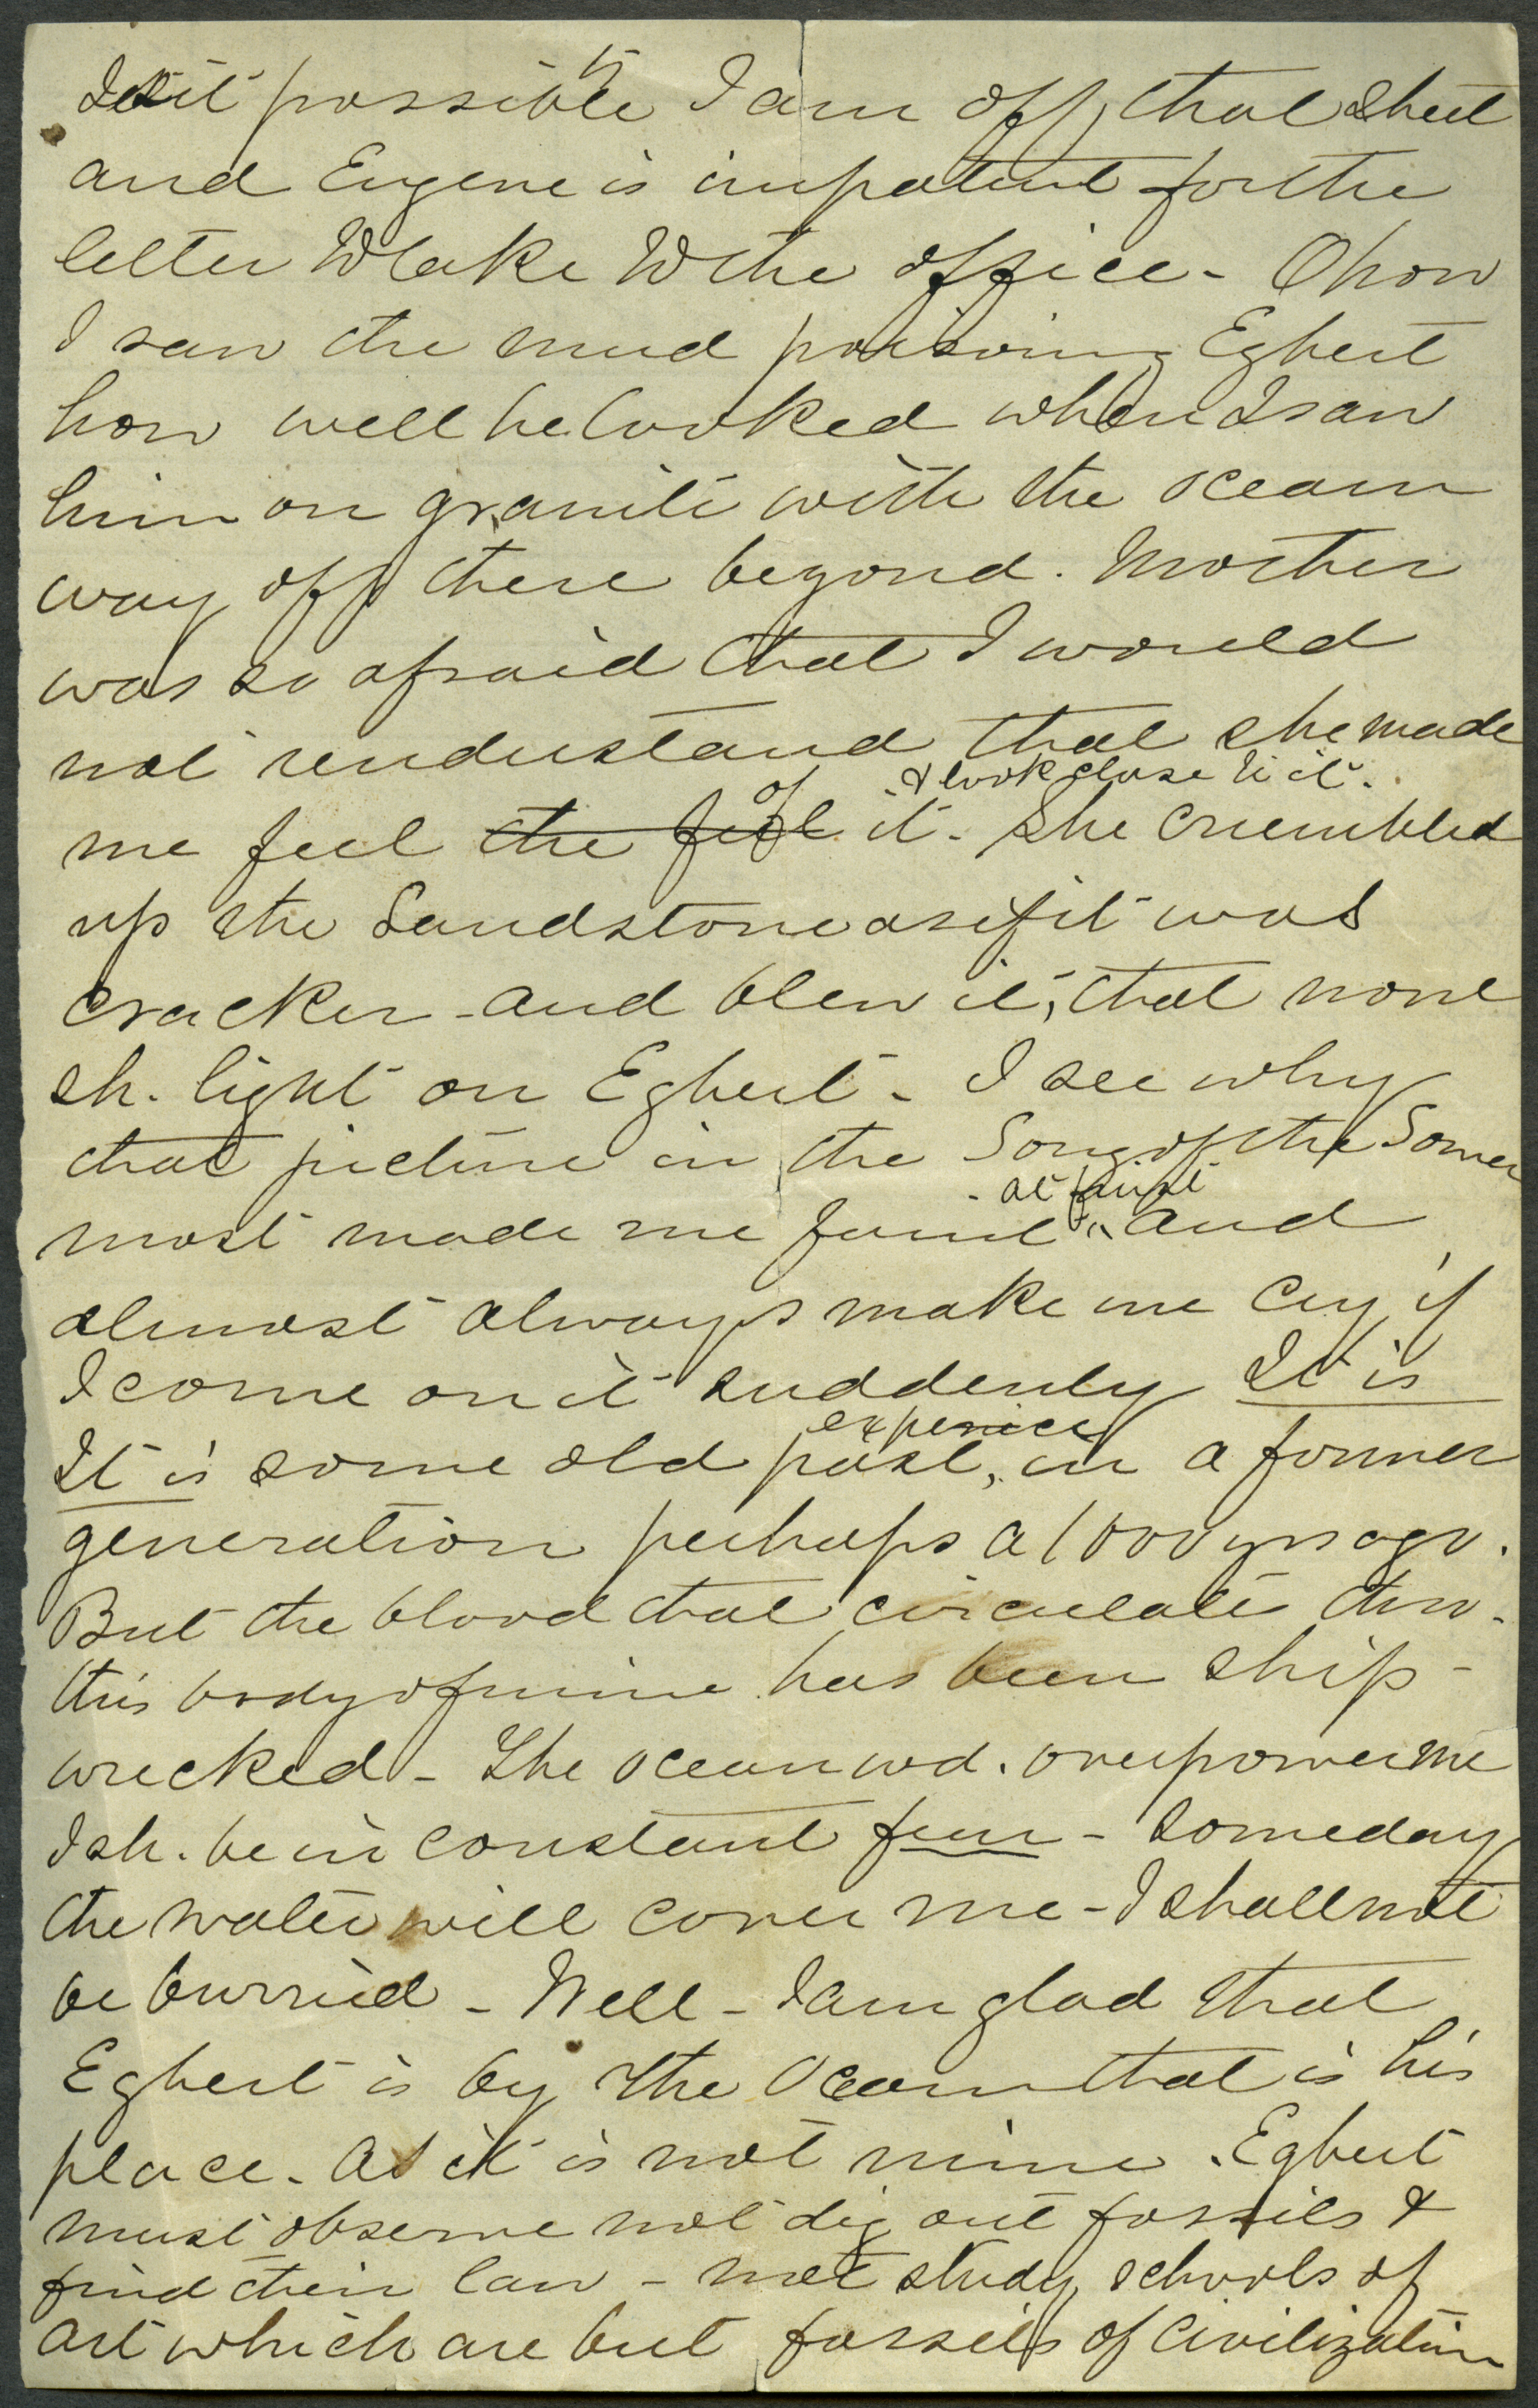 Is it possible I am off that sheet
and Eugene is impatient for the
letter to take to the office - O how
I saw the mud poisoning Egbert
how well he looked when I saw
him on granite with the ocean
way off there beyond. Mother
was so afraid that I would
not understand that she made
& look close to it.
me feel the feel of it - She crumbled
up the Sandstone as if it was
cracker - and blew it, that none
sh. light on Egbert - I see why
that picture in the Song of the Sower
- at first
most made me faint - and
almost always make me cry, if
I come on it suddenly It is
experience
It is some old past, in a former
generation perhaps a 1000 yrs ago.
But the blood that circulate thro.
this body of mine has been ship-
wrecked - The ocean wd. overpower me
I sh. be in constant fear - Someday
the water will cover me - I shall not
be burried - Well - I am glad that
Egbert is by the Ocean that is his
place. As it is not mine. Egbert
must observe not dig out fossils &
find their law - not study schools of
art which are but fossils of Civilization